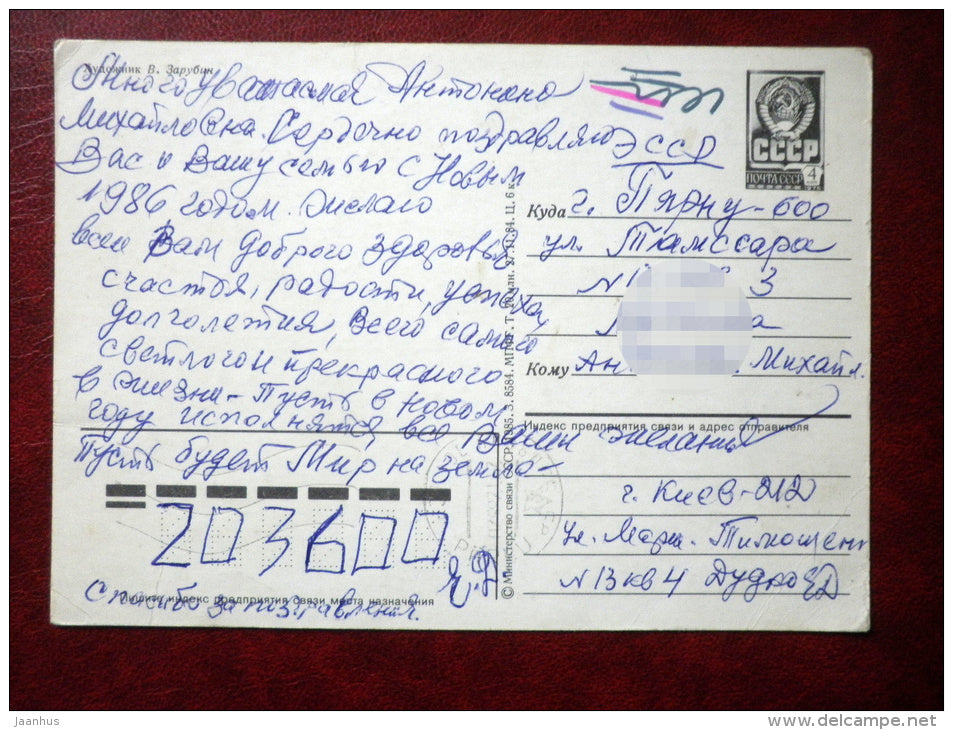 Художник В. Зарубин
Многоуважаемая Антонина
Михайловна. Сердечно поздравляю
Вас и Вашу семью с Новым
1986 годом. Желаю
всем Вам доброго здоровья,
счастья, радости, успеха,
долголетия, всего самого
светлого и прекрасного
в жизни - Пусть в новом
году исполнятся все Ваши желания
Пусть будет Мир на земле -
203600
Е.Д.
Пишите индекс предприятия связи места назначения
Спасибо за поздравления.
© Министерство связи СССР. 1985. З. 8584. МПФГ. Т. млн. 27.11.84. Ц. 6 к.
СССР
ПОЧТА СССР 4
ЭССР
Куда г. Пярну-600
ул. Таммсаара
N 3
Кому Ан Михайл.
Индекс предприятия связи и адрес отправителя
г. Киев-212
ул. Марш. Тимошен
N 13 кв 4 Дудро ЕД
Jaanhus
www.delcampe.net